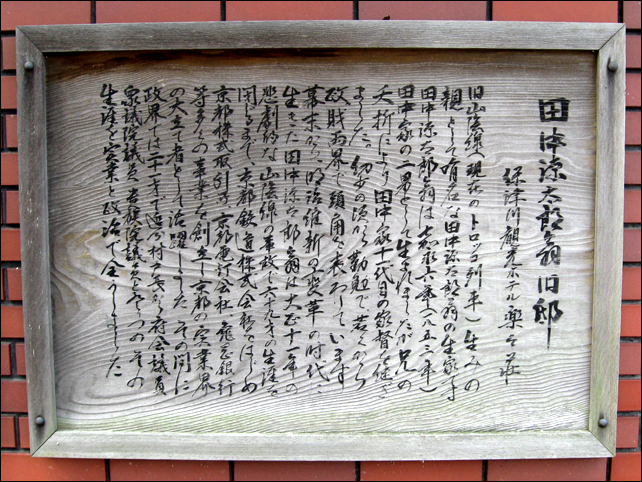 田中源太郎翁旧邸
保津川観光ホテル楽々荘
旧山陰線(現在のトロッコ列車)生みの
親として有名な田中源太郎翁の生家です
田中源太郎翁は嘉永六年(一八五三年)
田中家の二男として生まれましたが兄の
夭折により田中家十代目の家督を継ぎ
ました。幼少の頃から勤勉で若くから
政財両界で頭角を表わしています
幕末から明治維新の変革の時代に
生きた田中源太郎翁は大正十一年の
悲劇的な山陰線の事故で六十九才の生涯を
閉るまで、京都鉄道株式会社をはじめ
京都株式取引所、京都電灯会社、亀岡銀行
等多くの事業を創立し京都の実業界
の大立て者として活躍しました。その間に
政界では二十一才で追分村戸長から府会議員
衆議院議員、貴族院議員をつとめその
生涯を実業と政治で全うしました